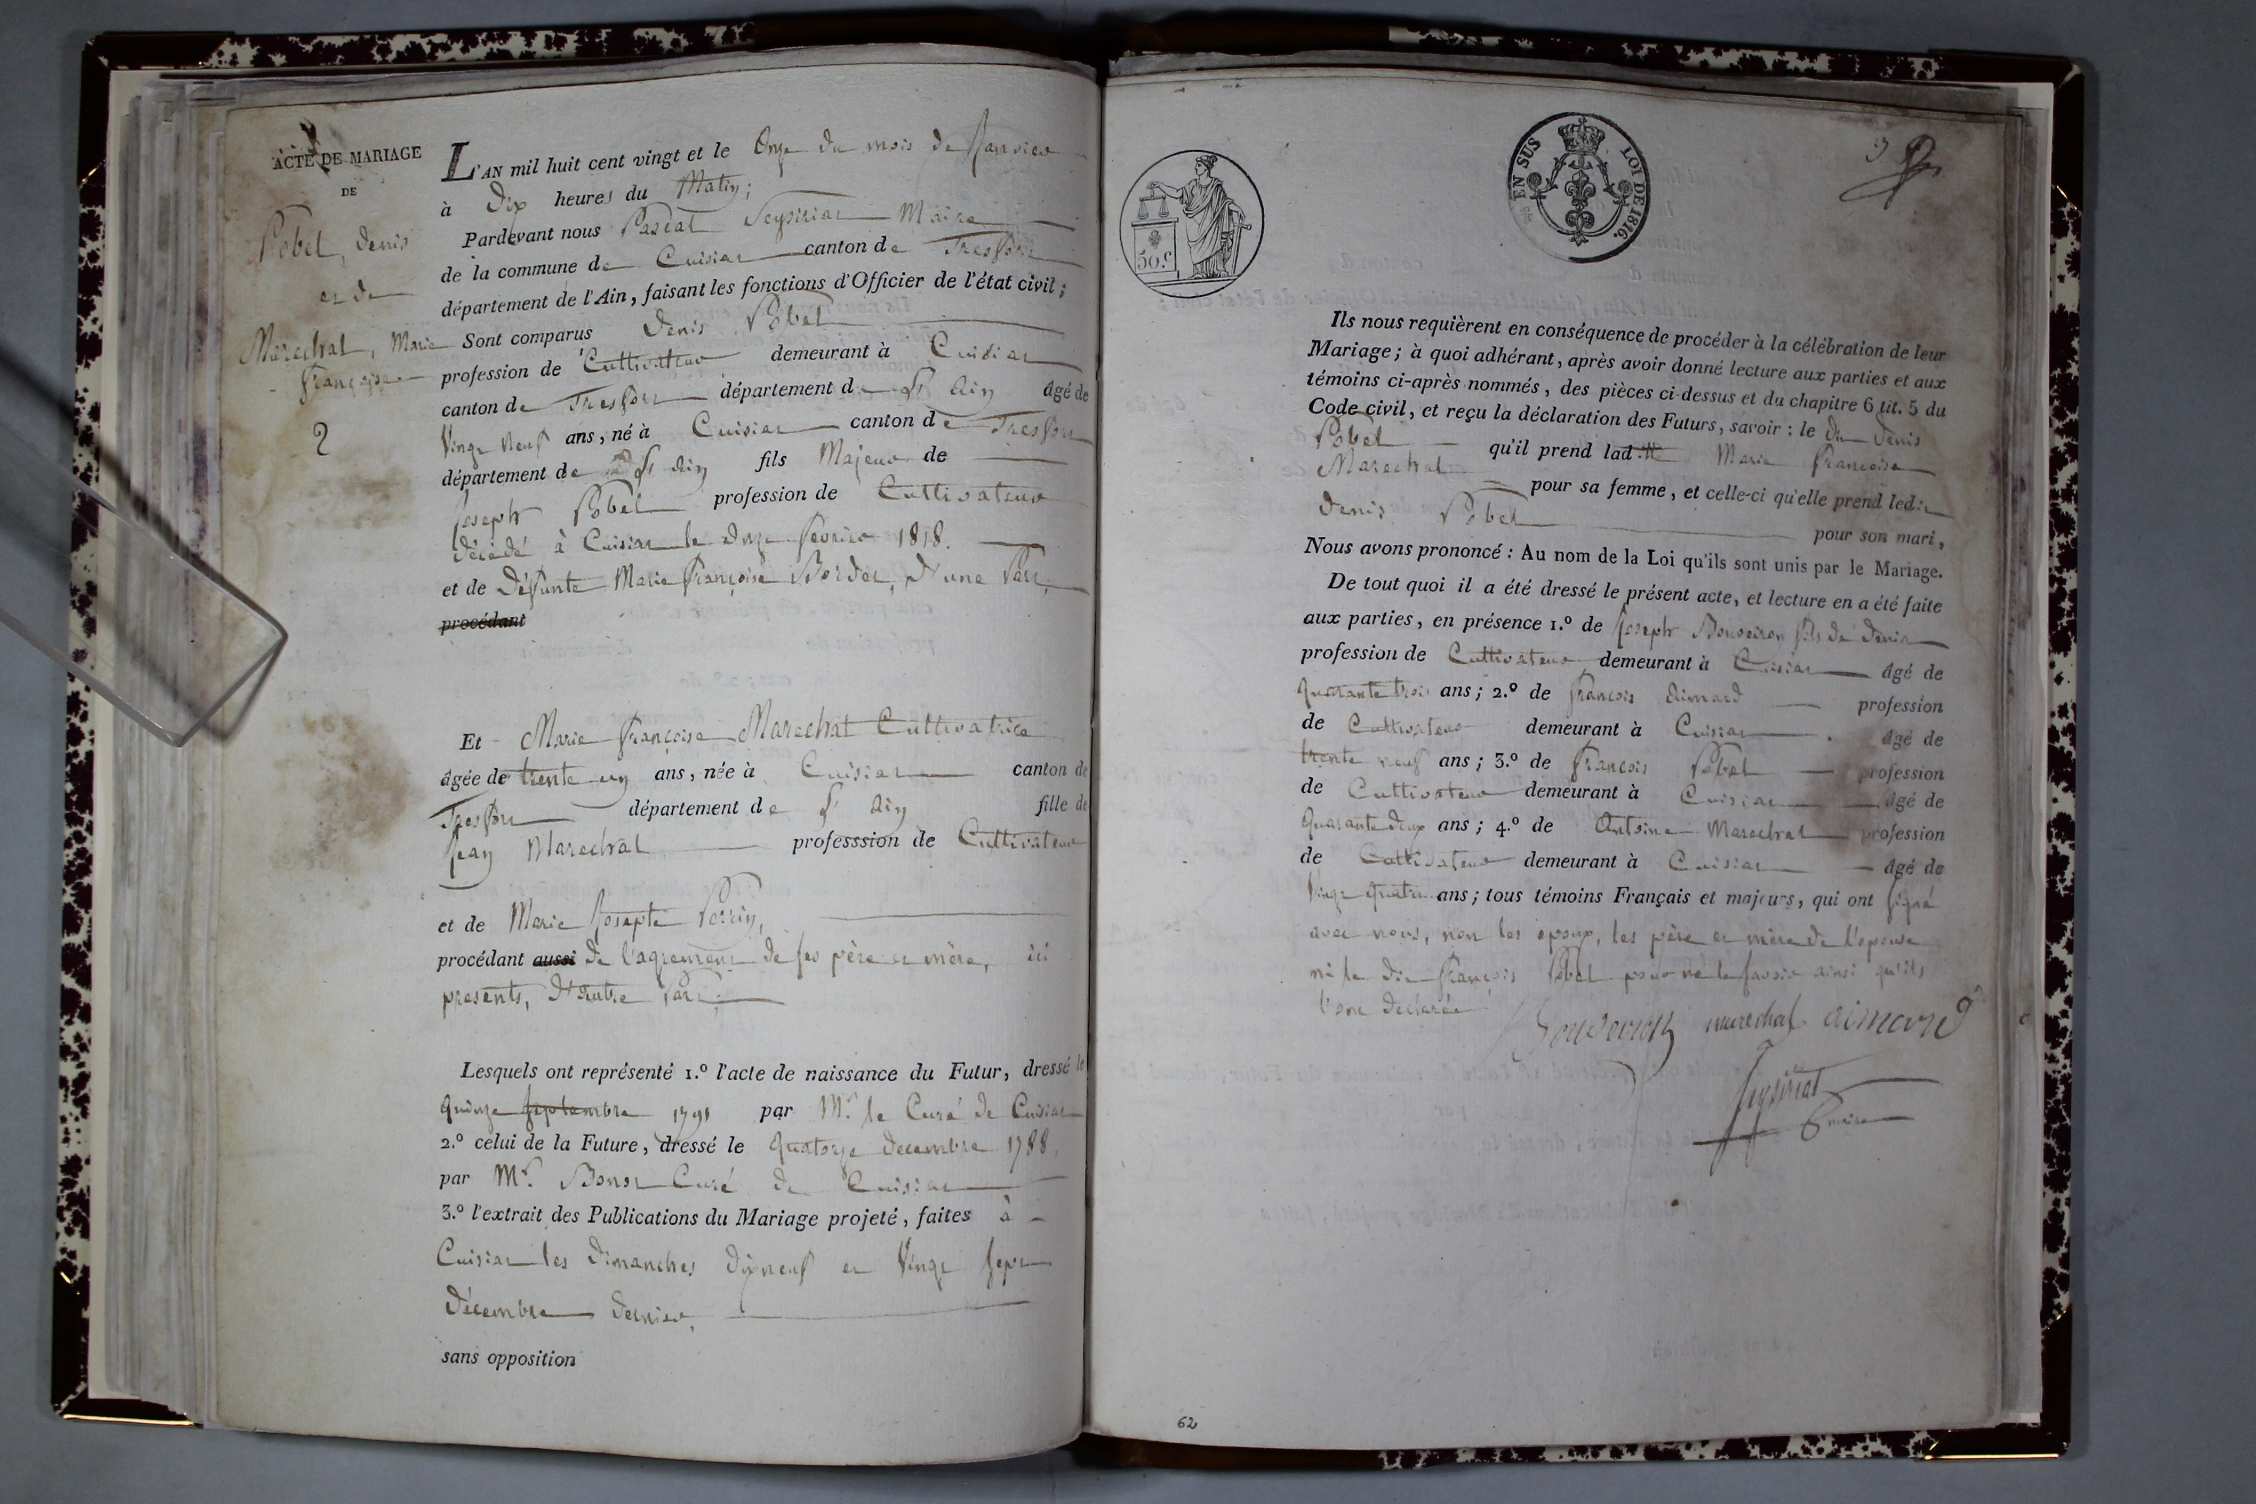 ACTE DE MARIAGE
DE
Pobel, Denis
et de
Marechal, Marie
françoise
2
L'AN mil huit cent vingt et le Onze du mois de Janvier
à Dix heures du Matin;
Pardevant nous Pascal Seysiriat Maire
de la commune de Cuisiat canton de Treffort
département de l'Ain, faisant les fonctions d'Officier de l'état civil;
Sont comparus Denis Pobel
profession de Cultivateur demeurant à Cuisiat
canton de Treffort département de l'Ain âgé de
Vingt Neuf ans, né à Cuisiat canton de Treffort
département de l'Ain fils Majeur de
Joseph Pobel profession de Cultivateur
décédé à Cuisiat le onze fevrier 1818.
et de Défunte Marie françoise Bordet, D'une Part,
procédant
Et Marie françoise Marechal Cultivatrice
âgée de trente un ans, née à Cuisiat canton de
Treffort département de l'Ain fille de
Jean Marechal professsion de Cultivateur
et de Marie Josepte Perrin,
procédant aussi de l'agrement de ses père et mère, ici
presents, D'autre Part,
Lesquels ont représenté 1.º l'acte de naissance du Futur, dressé le
Quinze Septembre 1791 par Mr. le Curé de Cuisiat
2.º celui de la Future, dressé le Quatorze decembre 1788,
par Mr. Curé de Cuisiat
3.º l'extrait des Publications du Mariage projeté, faites à
Cuisiat les dimanches dixneuf et Vingt sept
décembre dernier,
sans opposition
50.c
EN SUS
LOI DE 1816.
Ils nous requièrent en conséquence de procéder à la célébration de leur
Mariage; à quoi adhérant, après avoir donné lecture aux parties et aux
témoins ci-après nommés, des pièces ci-dessus et du chapitre 6 tit. 5 du
Code civil, et reçu la déclaration des Futurs, savoir: le dit Denis
Pobel qu'il prend ladite Marie françoise
Marechal pour sa femme, et celle-ci qu'elle prend ledit
Denis Pobel pour son mari,
Nous avons prononcé: Au nom de la Loi qu'ils sont unis par le Mariage.
De tout quoi il a été dressé le présent acte, et lecture en a été faite
aux parties, en présence 1.º de Joseph Bouveiron fils de Denis
profession de Cultivateur demeurant à Cuisiat âgé de
Quarante trois ans; 2.º de françois Aimard profession
de Cultivateur demeurant à Cuisiat âgé de
trente neuf ans; 3.º de françois Pobel profession
de Cultivateur demeurant à Cuisiat âgé de
Quarante deux ans; 4.º de Antoine Marechal profession
de Cultivateur demeurant à Cuisiat âgé de
Vingt Quatre ans; tous témoins Français et majeurs, qui ont signé
avec nous, non les epoux, les père et mère de l'epouse
ni le dit françois Pobel pour ne le savoir ainsi qu'ils
l'ont déclarée
Bouveiron marechal aimard
Seysiriat
maire
62